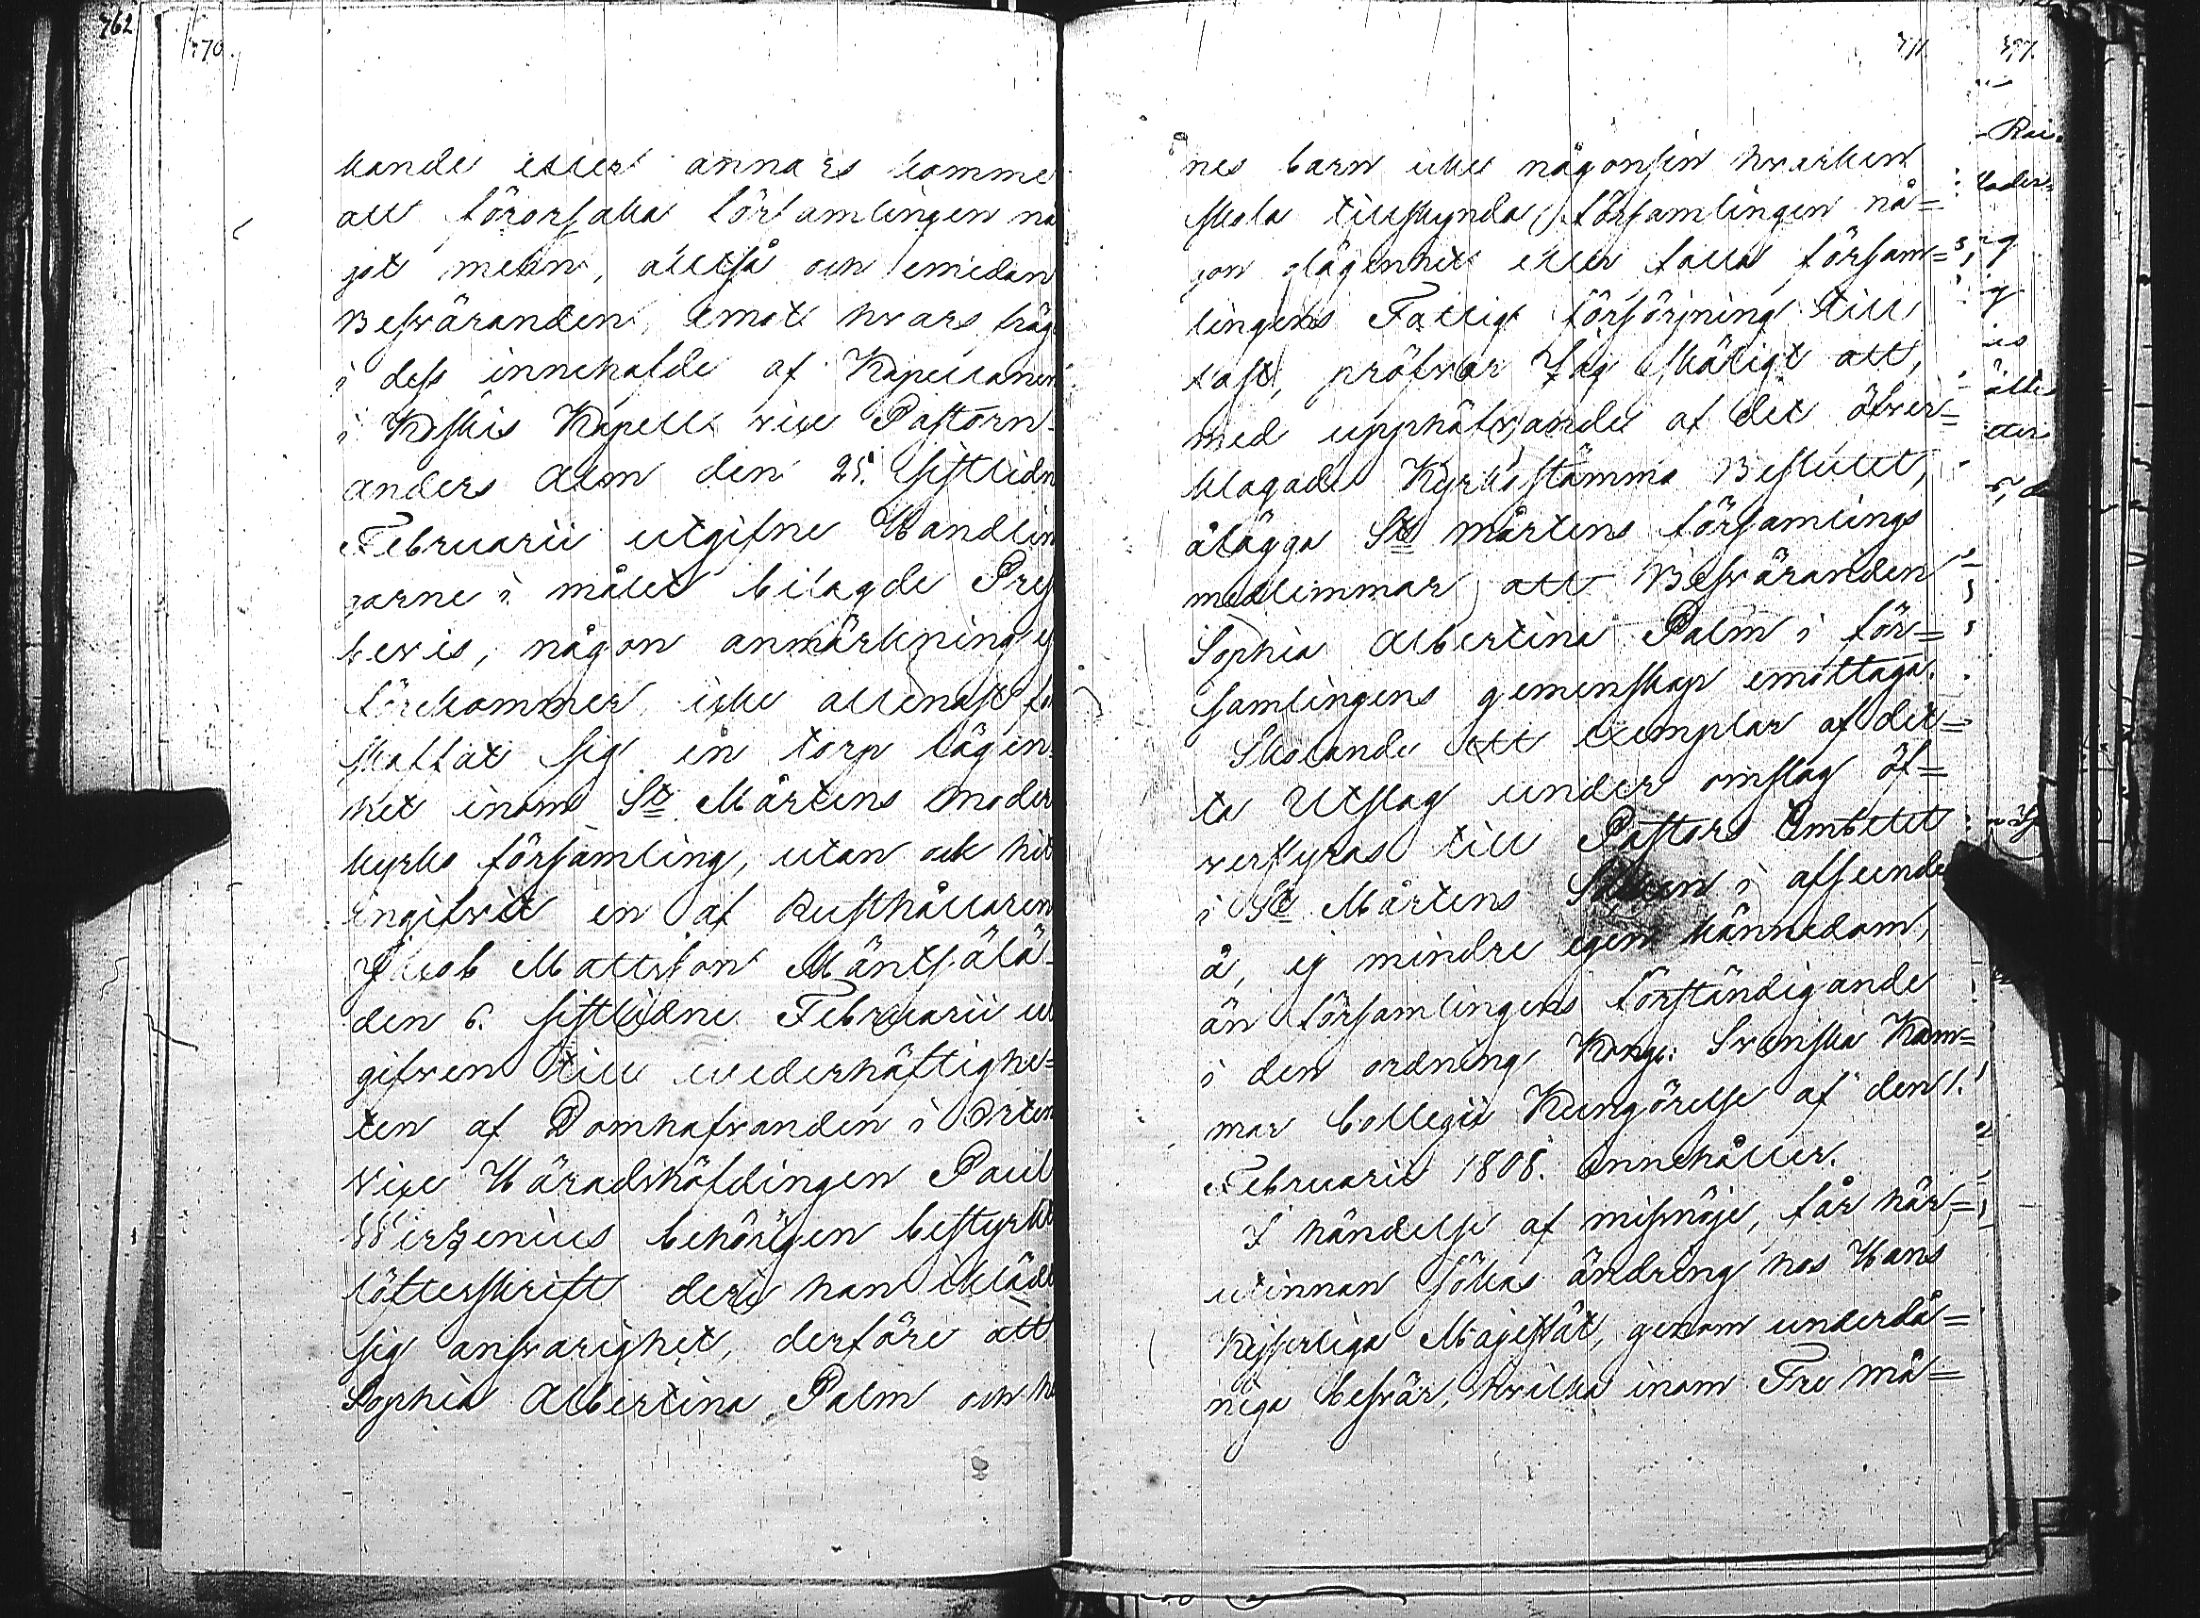 762
370.
kande eller annars komme
att förorsaka församlingen nå
got mehn, alltså och emedan
Besväranden, emot hvars fräg
i dess innehafde af Kapellanen
i Koskis Kapell vice Pastorn
Anders Alm den 25. sistlidn
Februarii utgifne Handlin
garne i målet bilagde Prest
bevis, någon anmärkning ej
förekommer, icke allenast för
skaffat sig en torp lägen
het inom St. Mårtens moder
kyrko församling, utan ock hit
ingifvit en af Rusthållaren
Jacob Mattsson Mäntsälä
den 6. sistlidne Februarii ut
gifven till vederhäftighe=
ten af Domhafvanden i Orten
Vice Häradshöfdingen Paul
Wirzenius behörigen bestyrkt
löfteskrift deri han iklädt
sig ansvarighet, derföre att
Sophia Albertina Palm och he
371.
nes barn icke någonsin hvarken
skola tillskynda församlingen nå=
gon olägenhet eller falla försam=
lingens Fattig försörjning till
last, pröfvar Jag skäligt att,
med upphäfvande af det öfver=
klagade Kyrkostämmo Beslutet,
ålägga St. Mårtens församlings
medlemmar att Besväranden
Sophia Albertina Palm i för=
samlingens gemenskap emottaga.
Skolande ett exemplar af det=
ta Utslag under omslag öf=
verstyras till Pastors Embetet
i St. Mårtens Socken i afseende
å, ej mindre egen kännedom,
än församlingens förständigande
i den ordning Kongl: Svenska Kam=
mar Collegii Kungörelse af den 1.
Februarii 1808. innehåller.
I händelse af missnöje, får här=
utinnan sökas ändring hos Hans
Kejserliga Majestät, genom underdå=
niga besvär, hvilka inom Tre må=
377.